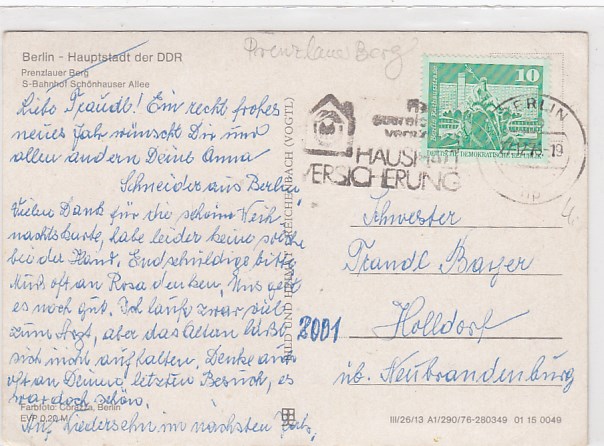 Berlin - Hauptstadt der DDR
Prenzlauer Berg
S-Bahnhof Schönhauser Allee
Prenzlauer Berg
Liebe Traudl! Ein recht frohes
neues Jahr wünscht Dir und
allen andern Deine Anna
Schneider aus Berlin
Vielen Dank für die schöne Weih
nachtskarte, habe leider keine solche
bei der Hand. Endschuldige bitte
Muß oft an Rosa denken, Uns geht
es noch gut. Ich laufe zwar viel
zum Arzt, aber das Altern läßt
sich nicht aufhalten. Denke auch
oft an Deinen letzten Besuch, es
war doch schön.
Auf Wiedersehn im nächsten Jahr,
Farbfoto: Corazza, Berlin
EVP 0,20 M
BILD UND HEIMAT REICHENBACH (VOGTL)
10
DEUTSCHE DEMOKRATISCHE REPUBLIK
HAUSRAT
VERSICHERUNG
BERLIN
Schwester
Traudl Bayer
2001
Holldorf
üb. Neubrandenburg
III/26/13 A1/290/76-280349 01 15 0049